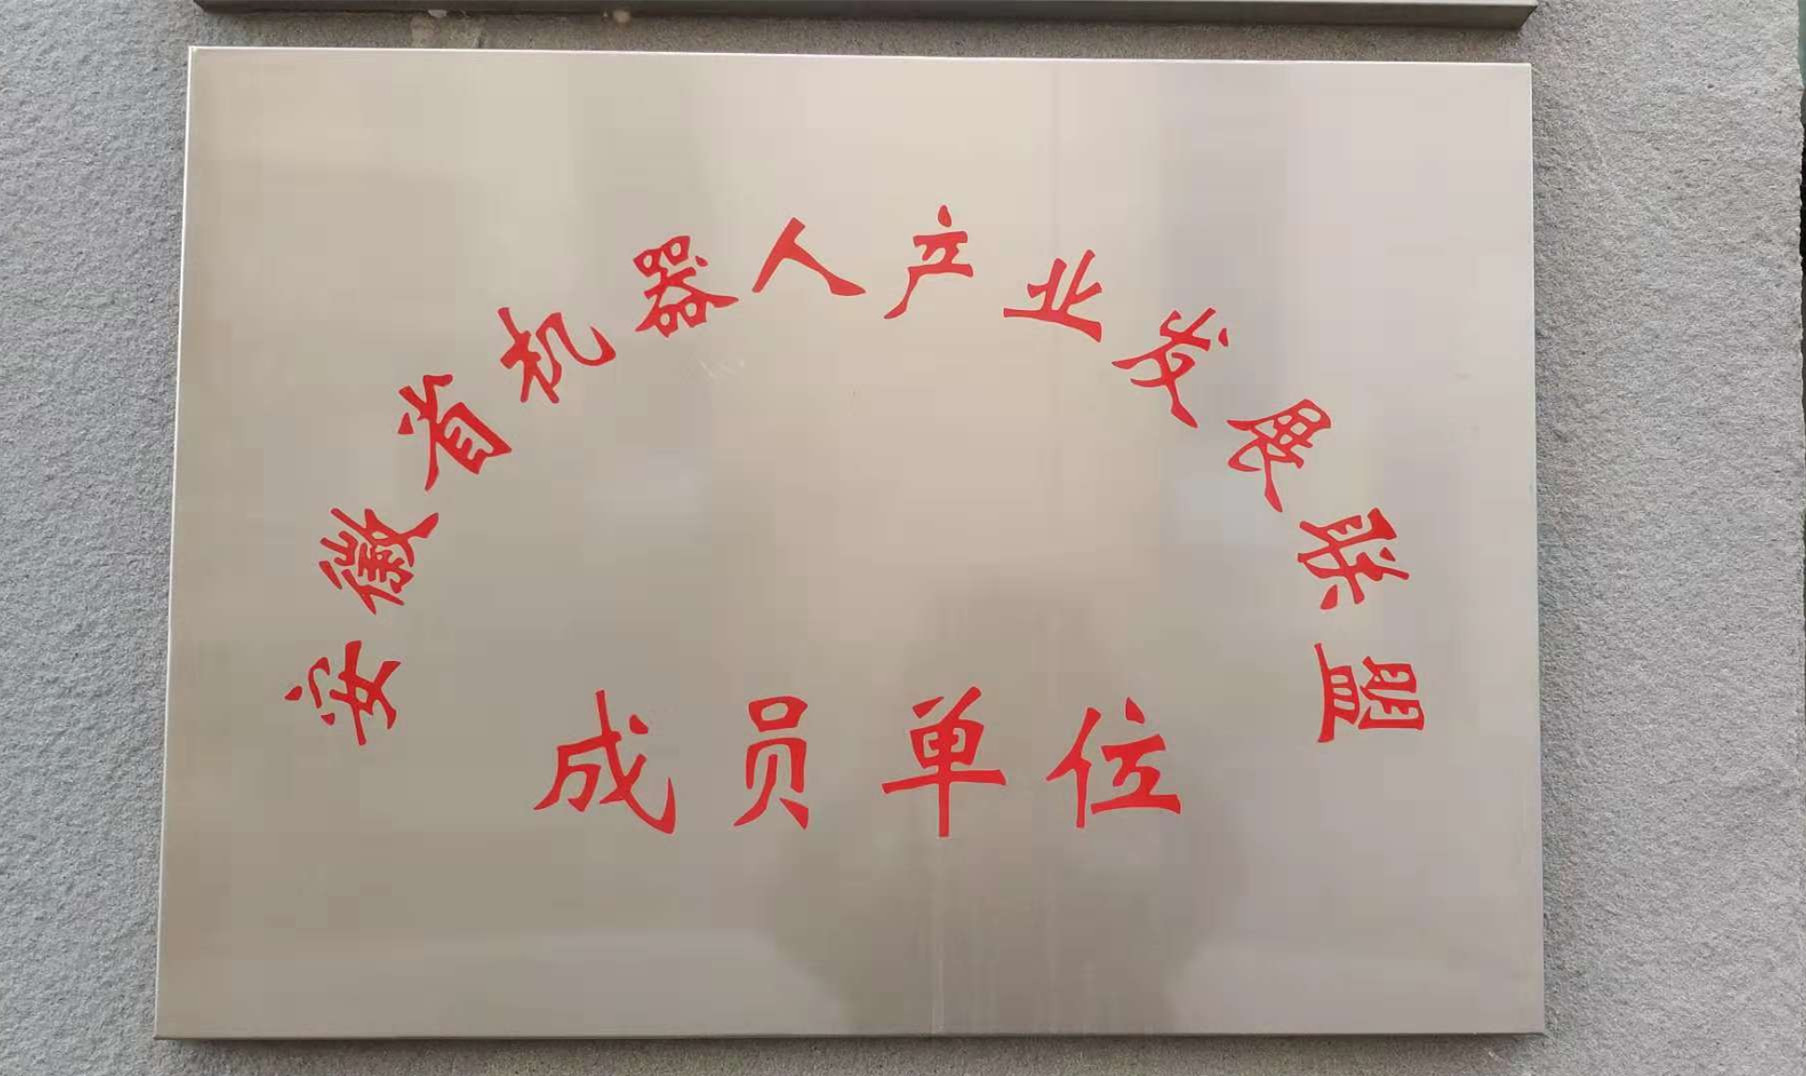 安徽省机器人产业发展联盟
成员单位